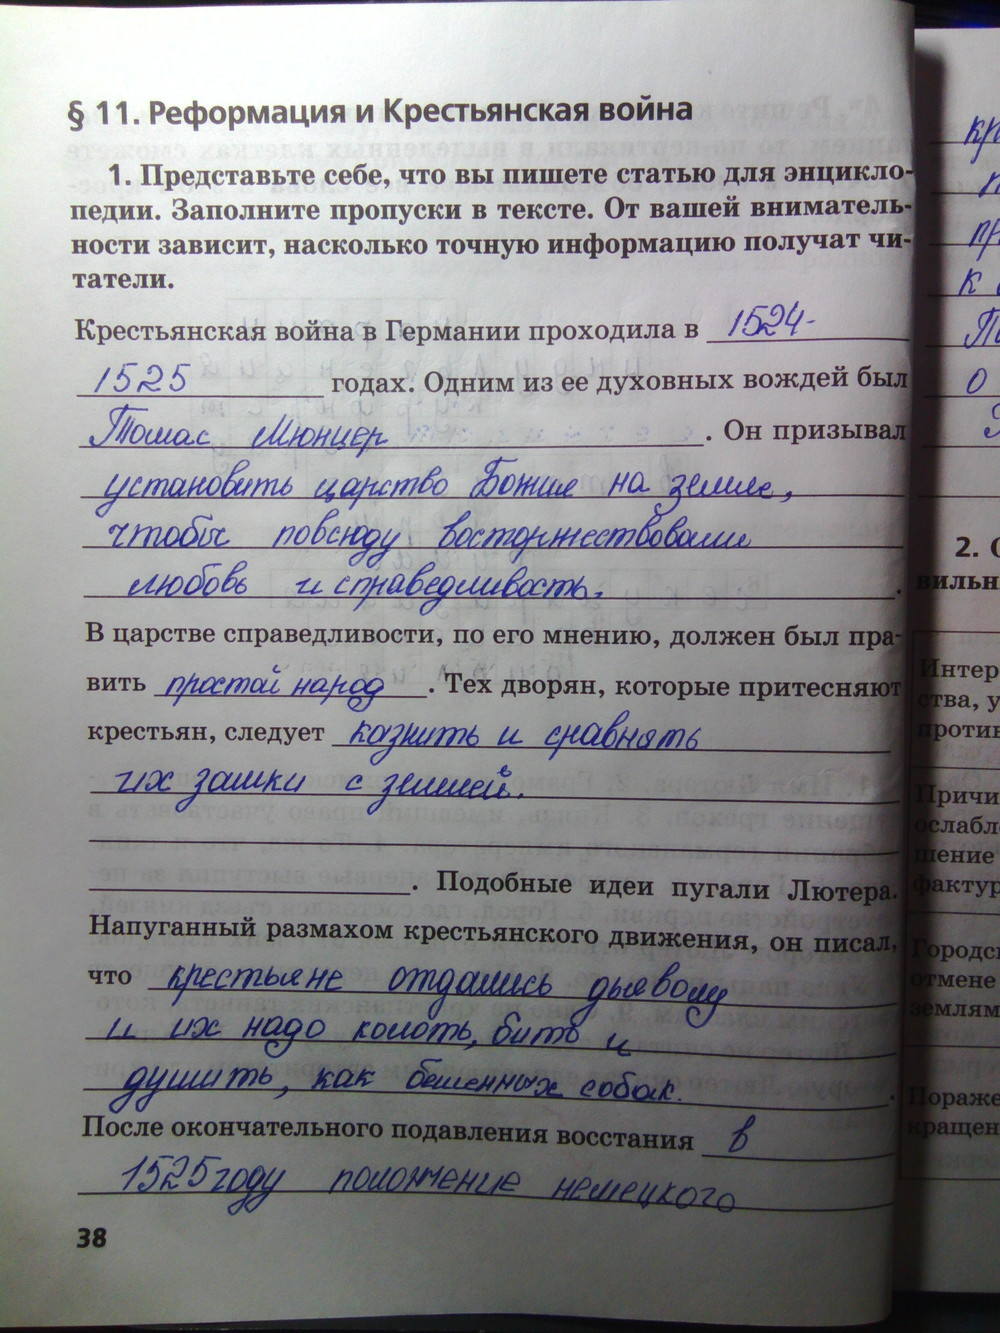 § 11. Реформация и Крестьянская война
1. Представьте себе, что вы пишете статью для энцикло-
педии. Заполните пропуски в тексте. От вашей вниматель-
ности зависит, насколько точную информацию получат чи-
татели.
Крестьянская война в Германии проходила в 1524-
1525 годах. Одним из ее духовных вождей был
Томас Мюнцер. Он призывал
установить царство Божие на земле,
чтобы повсюду восторжествовали
любовь и справедливость.
В царстве справедливости, по его мнению, должен был пра-
вить простой народ. Тех дворян, которые притесняют
крестьян, следует казнить и сравнять
их замки с землей.
. Подобные идеи пугали Лютера.
Напуганный размахом крестьянского движения, он писал,
что крестьяне отдались дьяволу
и их надо колоть, бить и
душить, как бешенных собак.
После окончательного подавления восстания в
1525 году положение немецкого
38
кр
к
о
2.
вильн
Интер
ства, у
против
Причи
ослабл
шение
фактур
Городс
отмене
землям
Пораже
кращен